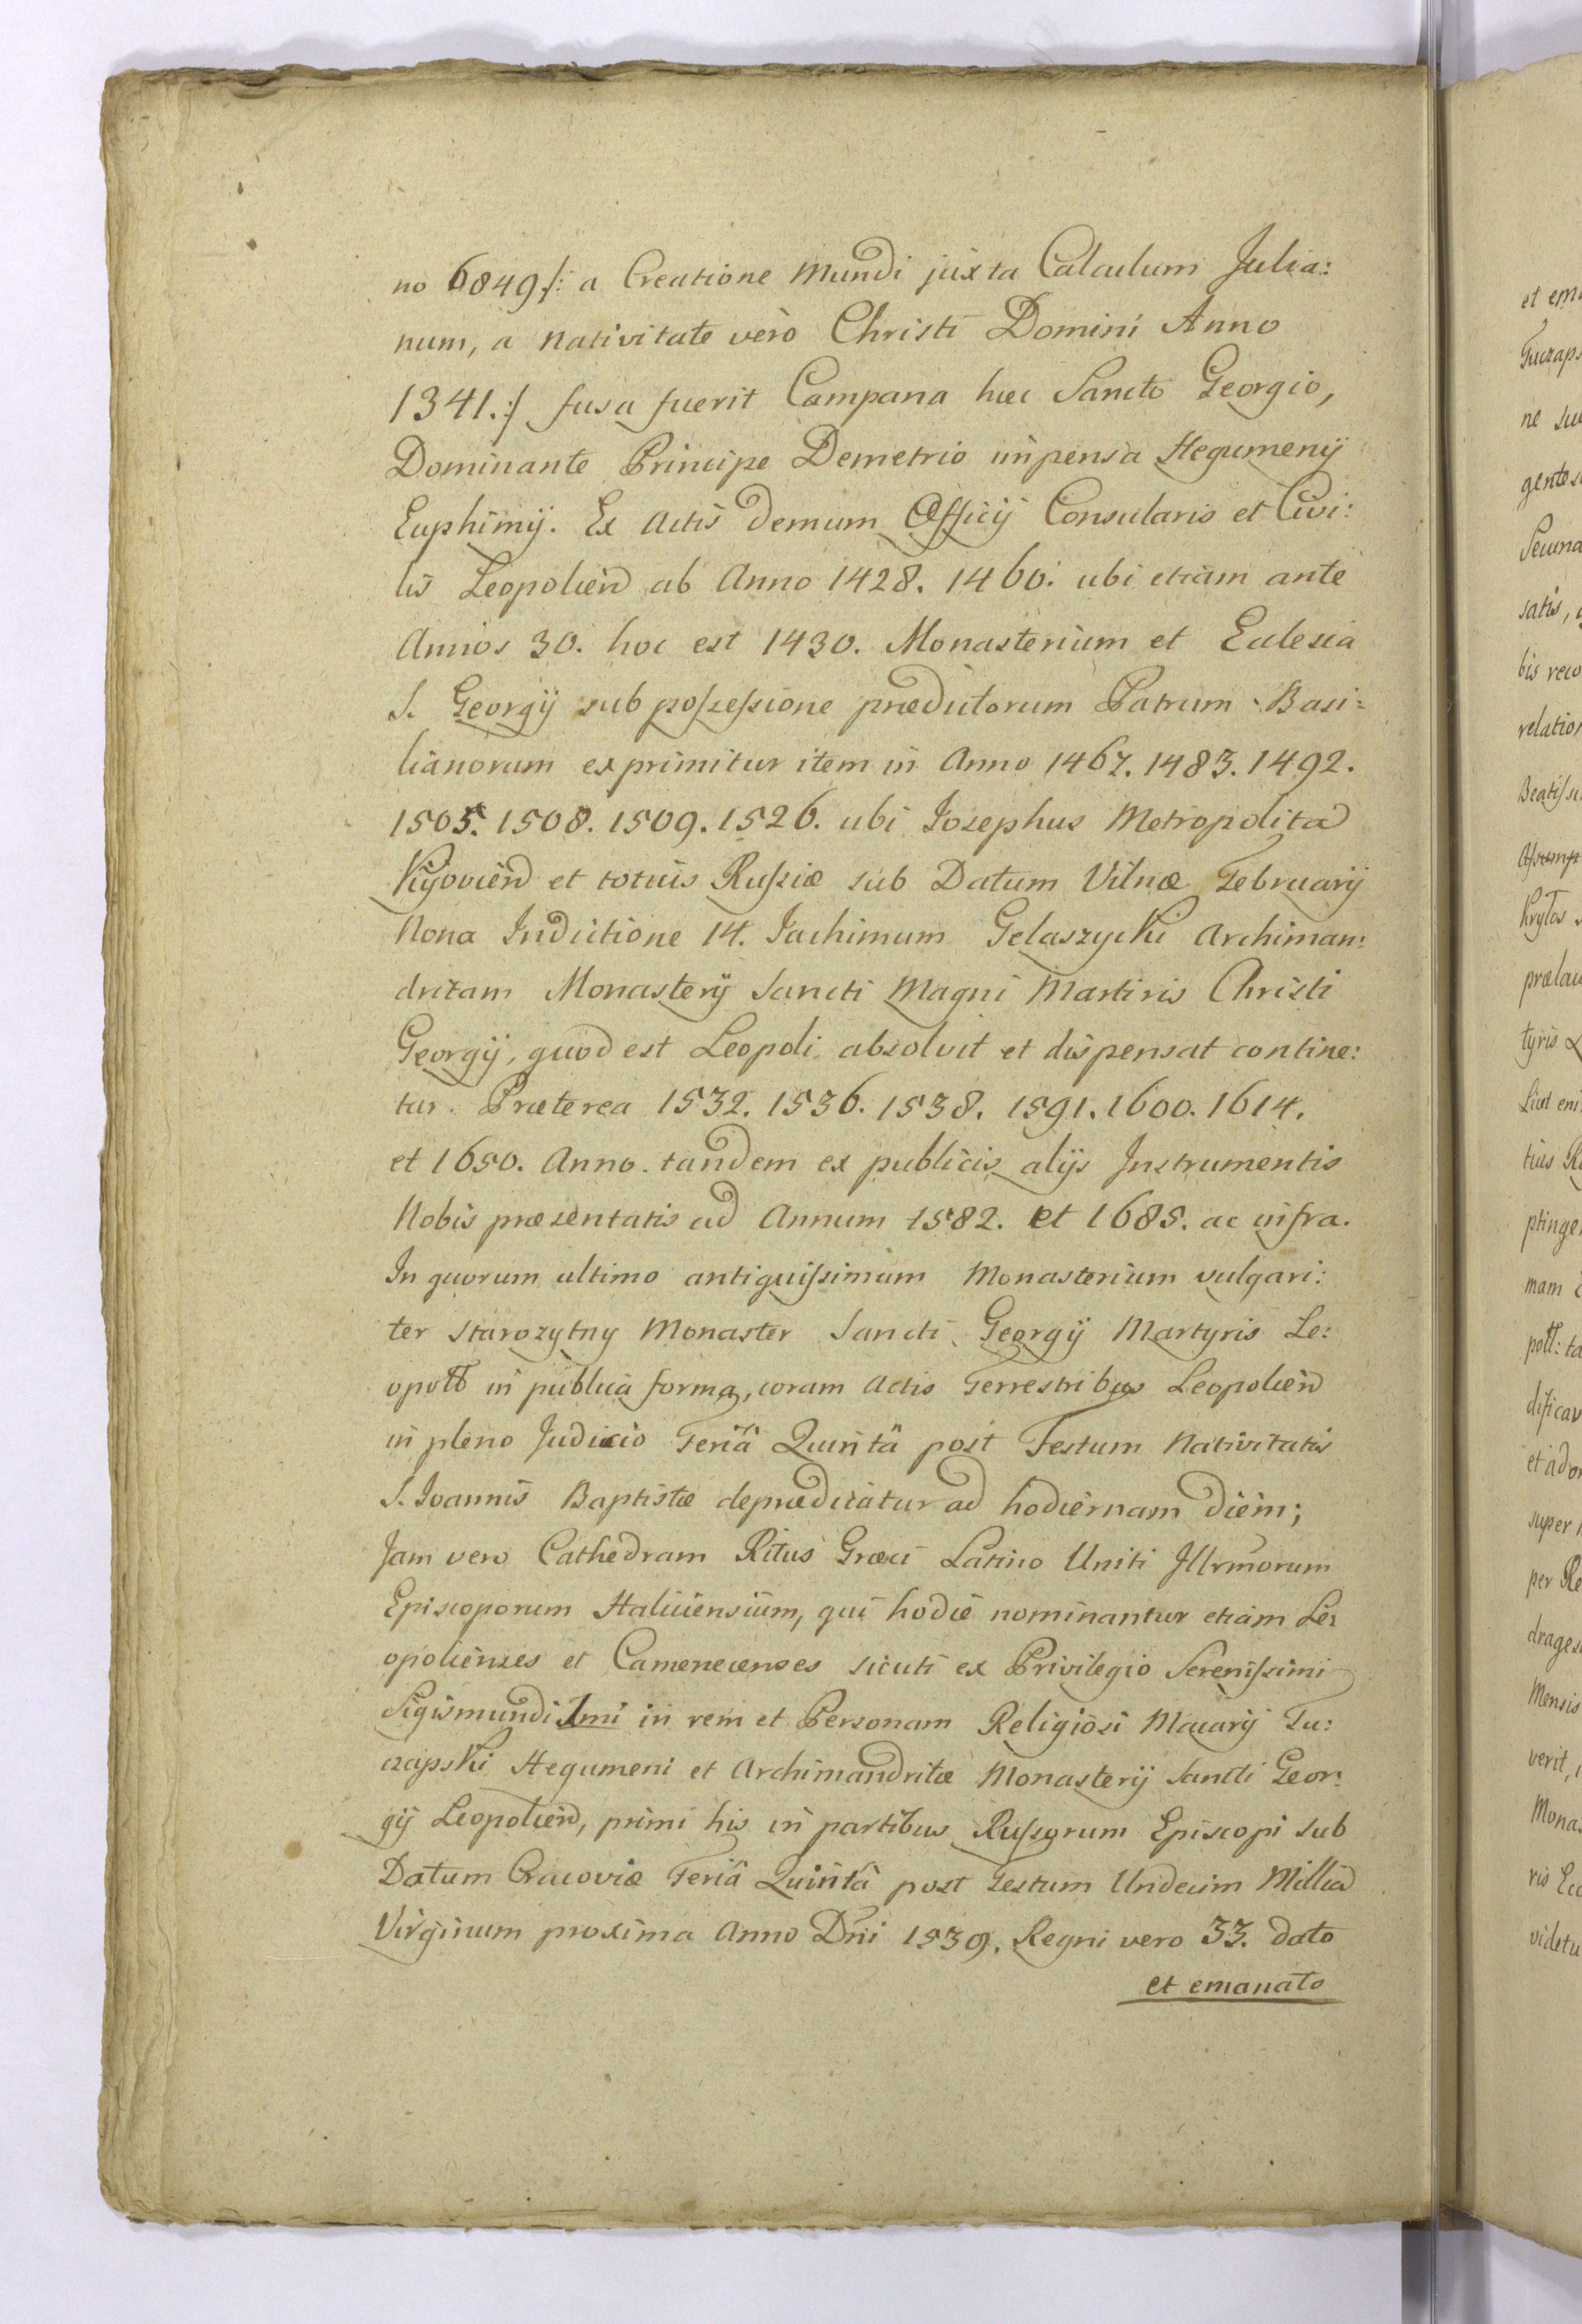 no 6849/: a Creatione Mundi juxta Calculum Julia:
num, a Nativitate verò Christi Domini Anno
1341.:/ fusa fuerit Campana hæc Sancto Georgio,
Dominante Principe Demetrio impensa Hegumenij
Euphimij. Ex Actis demum Officij Consularis et Civi:
lis Leopolien ab Anno 1428. 1460. ubi etiam ante
Annos 30. hoc est 1430. Monasterium et Eclesia
S. Georgij sub possessione prædictorum Patrum Basi:
lianorum exprimitur item in Anno 1467. 1483. 1492.
1505. 1508. 1509. 1526. ubi Josephus Metropolita
Kijovien et totius Russiæ sub Datum Vilnæ Februarij
Nona Indictione 14. Jachimum Gelaszycki Archiman:
dritam Monasterij Sancti Magni Martiris Christi
Georgij, quod est Leopoli absolvit et dispensat contine:
tur. Præterea 1532. 1536. 1538. 1591. 1600. 1614.
et 1650. Anno. tandem ex publicis alijs Instrumentis
Nobis præsentatis ad Annum 1582. et 1685. ac infra.
In quorum ultimo antiquissimum Monasterium vulgari:
ter starozytny Monaster Sancti Georgij Martyris Le:
opoll in publica forma, coram Actis Terrestribus Leopolien
in pleno Judicio Feriâ Quintâ post Festum Nativitatis
S. Joannis Baptistæ deprædicatur ad hodiernam diem;
Jam vero Cathedram Ritus Græci Latino Uniti Illrmorum
Episcoporum Haliciensium, qui hodie nominantur etiam Le:
opolienses et Camenecenses sicuti ex Privilegio Serenissimi
Sigismundi 1mi in rem et Personam Religiosi Macarij Tu:
czapski Hegumeni et Archimandritæ Monasterij Sancti Geor:
gij Leopolien, primi his in partibus Russorum Episcopi sub
Datum Cracoviæ Feriâ Quintâ post Festum Undecim Millia
Virginum proxima Anno Dni 1539. Regni vero 33. dato
et emanato